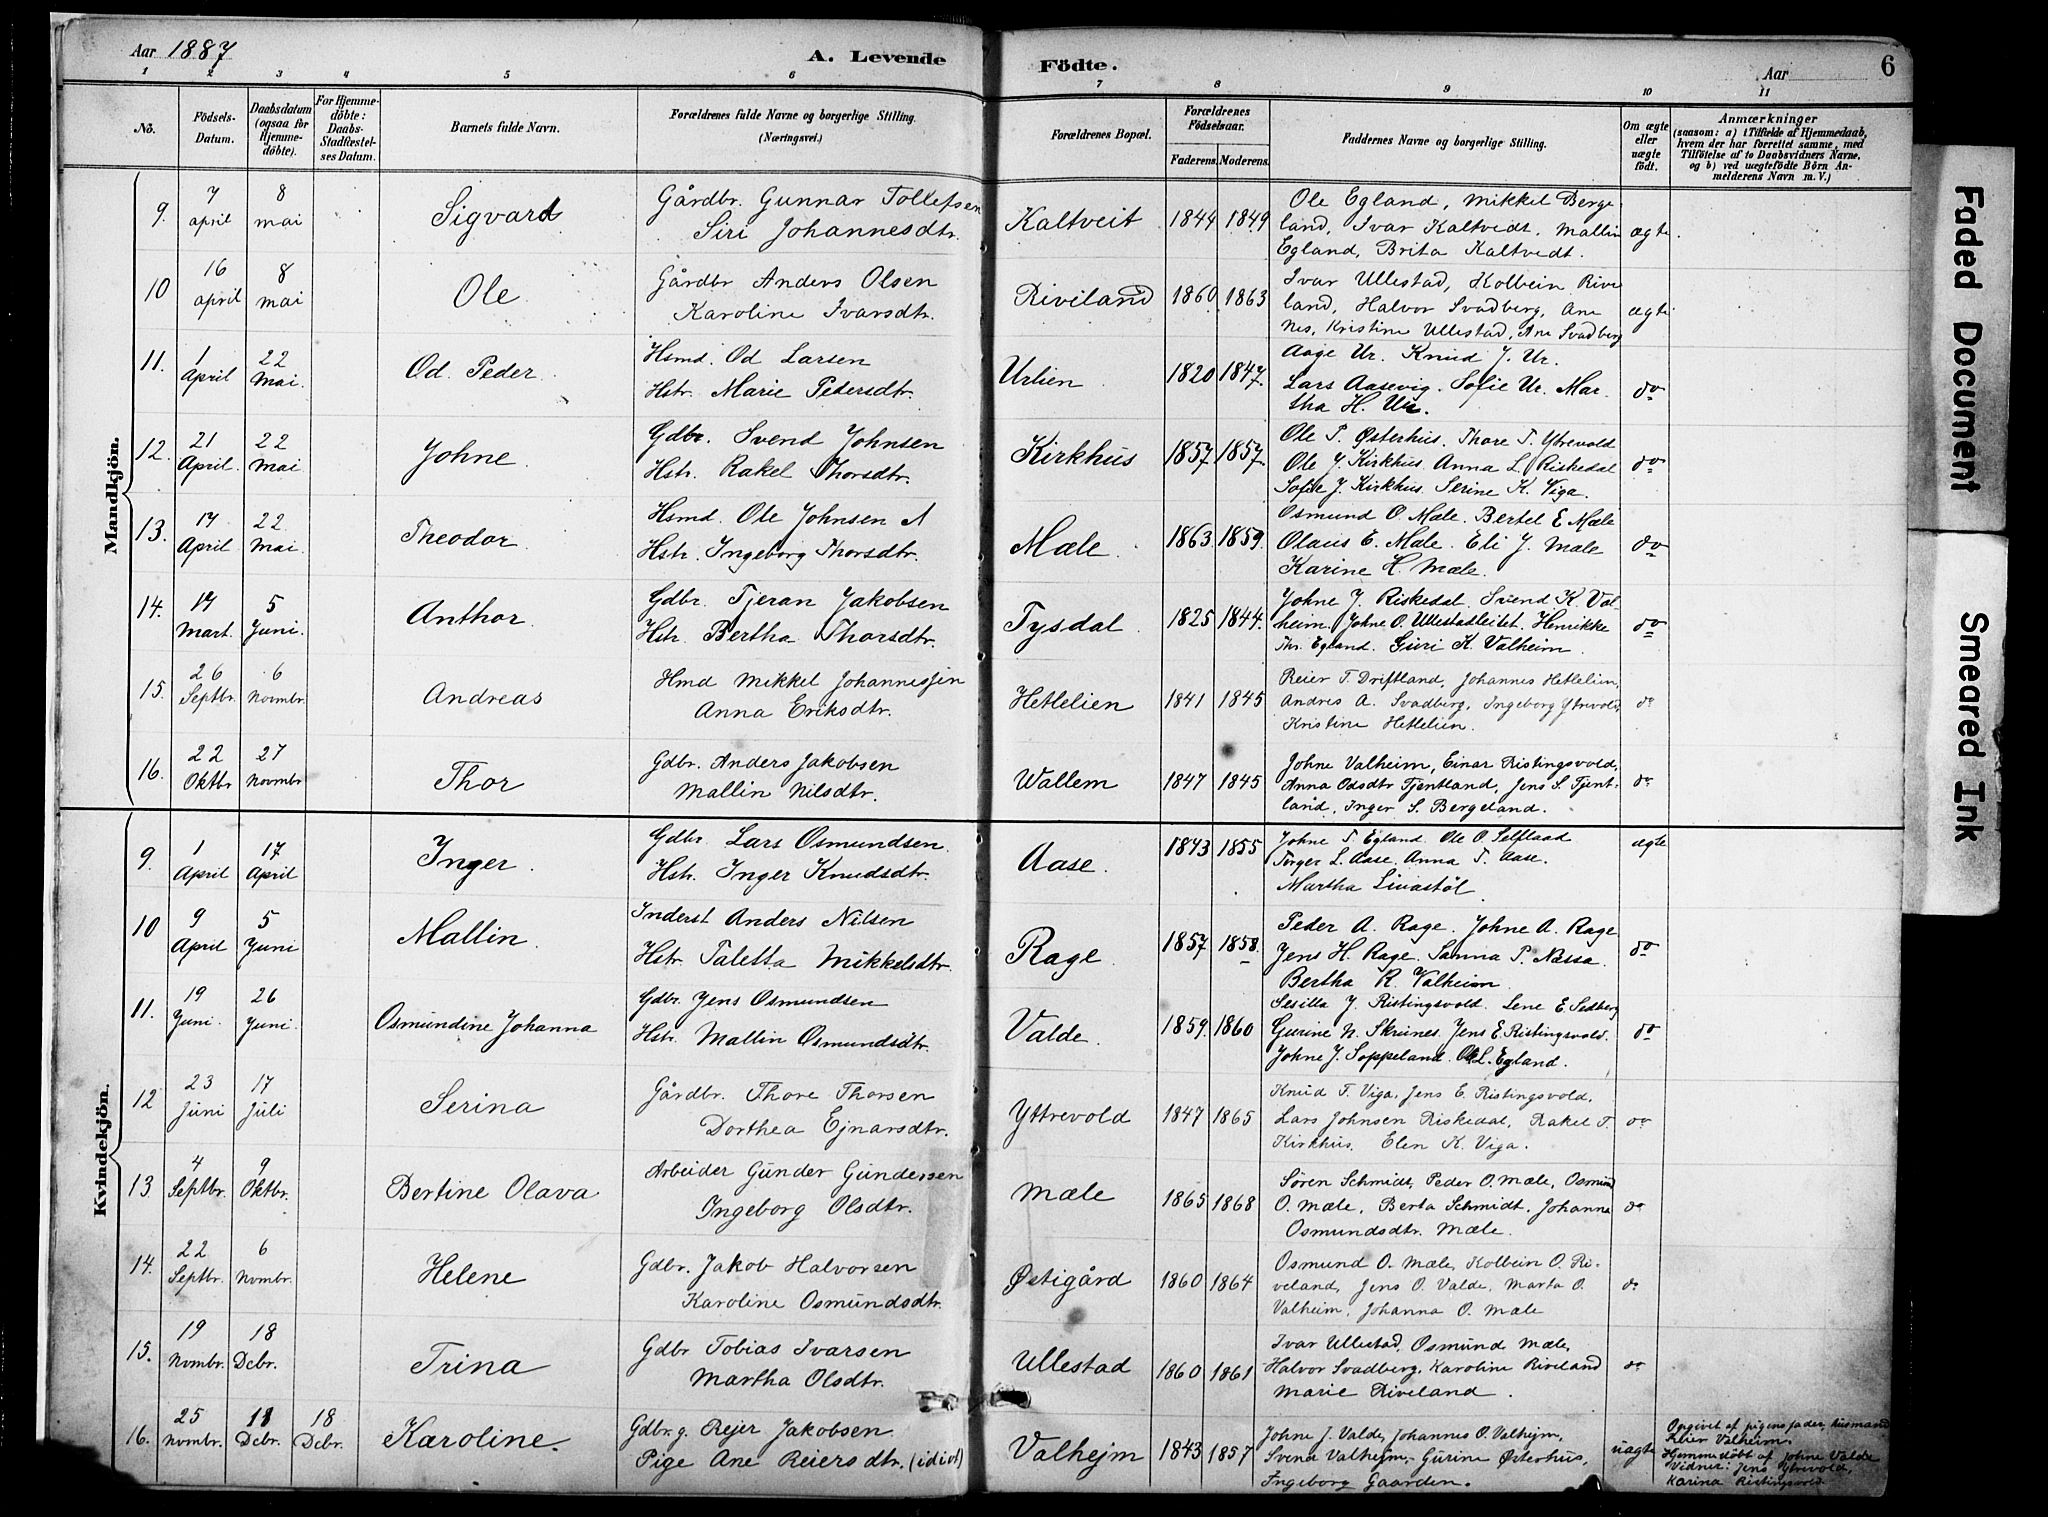 Aar 1887
A. Levende
Födte.
Aar
6
1 2 3 4 5 6 7 8 9 10 11
No.
Födsels-Datum.
Daabsdatum (ogsaa for Hjemme-döbte).
For Hjemme-döbte: Daabs-Stadfæstel-ses Datum.
Barnets fulde Navn.
Forældrenes fulde Navne og borgerlige Stilling. (Næringsvei.)
Forældrenes Bopæl.
Forældrenes Födselsaar.
Faderens. Moderens.
Faddernes Navne og borgerlige Stilling.
Om ægte eller uægte födt.
Anmærkninger
(saasom: a) i Tilfælde af Hjemmedaab,
hvem der har forrettet samme, med
Tilföielse af to Daabsvidners Navne,
og b) ved uægtefödte Börn An-
melderens Navn m. V.)
Mandkjön.
9. 7 april 8 mai Sigvard
Gårdbr. Gunnar Tollefsen
Siri Johannesdtr.
Kaltveit 1844 1849
Ole Egland, Mikkel Berge
land, Ivar Kaltvedt, Mallin
Egland, Brita Kaltvedt.
ægte.
10 16 april 8 mai Ole.
Gårdbr Anders Olsen
Karoline Ivarsdtr.
Riviland 1860 1863
Ivar Ullestad, Kolbein Rive
land, Halvor Svadberg, Ane
Nes, Kristine Ullestad, Ane Svadberg
ægte
11. 1 April 22 Mai. Od. Peder.
Hsmd. Od Larsen
Hstr. Marie Pedersdtr.
Urlien 1820 1847.
Aage Ur. Knud J. Ur.
Lars Aasevig. Sofie Ur. Mar-
tha H. Ur.
do
12. 21 April. 22 Mai Johne.
Gdbr. Svend Johnsen
Hstr. Rakel Thorsdtr.
Kirkhus 1857. 1857.
Ole T. Østerhus. Thore T. Ytrevold
Ole J. Kirkhus. Anna L. Riskedal
Sofie J. Kirkhus. Serine K. Viga.
do
13. 17 April 22 Mai. Theodor.
Hsmd. Ole Johnsen
Hstr. Ingeborg Thorsdtr.
Mæle. 1863. 1859.
Osmund O. Mæle. Bertel E. Mæle
Olaus E. Mæle. Eli J. Mæle
Karine H. Mæle.
do
14. 17 Mart. 5 Juni. Anthor.
Gdbr. Tjeran Jakobsen
Hstr. Bertha Thorsdtr.
Tysdal. 1825 1844.
Johne J. Riskedal. Svend K. Val-
heim. Johne O. Ullestadleitet. Henrikke
Thr. Egland. Guri K. Valheim.
do
15. 26 Septbr. 6 Novmbr. Andreas
Hmd Mikkel Johannesjen
Anna Eriksdtr.
Hetlelien 1841 1845
Reier T. Driftland, Johannes Hetlelien,
Andres A. Svadberg, Ingeborg Ytrevold,
Kristine Hetlelien
do
16. 22 Oktbr 27 Novmbr Thor
Gdbr. Anders Jakobsen
Mallin Nilsdtr.
Wallem 1847 1845
Johne Valheim, Einar Ristingsvold,
Anna Odsdtr Tjentland, Jens S. Tjent-
land, Inger S. Bergeland.
do
Kvindekjön.
9. 1 April 17 April Inger.
Gdbr. Lars Osmundsen.
Hstr. Inger Knudsdtr.
Aase. 1843 1855
Johne T. Egland. Ole O. Selflaad
Torger L. Aase. Anna T. Aase.
Martha Livastöl
ægte
10 9 April 5 Juni Mallin.
Inderst Anders Nilsen
Hstr. Taletta Mikkelsdtr.
Rage. 1857. 1858.
Peder A. Rage. Johne A. Rage
Jens H. Rage. Sanna P. Næssa.
Bertha R. Valheim.
do
11. 19 Juni. 26 Juni. Osmundine Johanna
Gdbr. Jens Osmundsen
Hstr. Mallin Osmundsdtr.
Valde. 1859. 1860
Sesilla J. Ristingsvold. Lene E. Sedberg
Gurine N. Skrunes. Jens E. Ristingsvold.
Johne J. Soppeland. Ole L. Egland.
do
12 23 Juni 17 Juli Serina
Gårdbr. Thore Thorsen
Dorthea Ejnarsdtr.
Yttrevold 1847 1865
Knud T. Viga, Jens E. Ristingsvold,
Lars Johnsen Riskedal, Rakel T.
Kirkhus. Elen K. Viga.
do
13 4 Septbr. 9 Oktbr. Bertine Olava
Arbeider Gunder Gundersen
Ingeborg Olsdtr.
Mæle 1865 1868
Søren Schmidt, Peder O. Mæle, Osmund
O. Mæle, Berta Schmidt, Johanna
Osmundsdtr. Mæle.
do
14. 22 Septbr. 6 Novmbr. Helene
Gdbr. Jakob Halvorsen
Karoline Osmundsdtr.
Østigård 1860 1864
Osmund O. Mæle, Kolbein O. Ri-
veland, Jens O. Valde, Marta O.
Valheim, Johanna O. Mæle
do
15. 19 Novmbr. 18 Debr. Trina
Gdbr Tobias Ivarsen
Martha Olsdtr.
Ullestad 1860 1861
Ivar Ullestad, Osmund Mæle,
Halvor Svadberg, Karoline Riveland
Marie Riveland.
do
16. 25 Novmbr. 18 Debr. 18 Debr. Karoline.
Gdbr.g. Rejer Jakobsen.
Pige Ane Reiersdtr. (idiot)
Valhejm 1843 1857
Johne J. Valde, Johannes O. Valhejm,
Svend Valhejm, Gurine Østerhus,
Ingeborg Gaarden.
uægte
Opgivet af pigens fader, husmand
Reier Valheim.
Hjemmedöbt af Johne Valde
Vidner: Jens Ytrevold,
Karina Ristingsvold
Faded Document
Smeared Ink